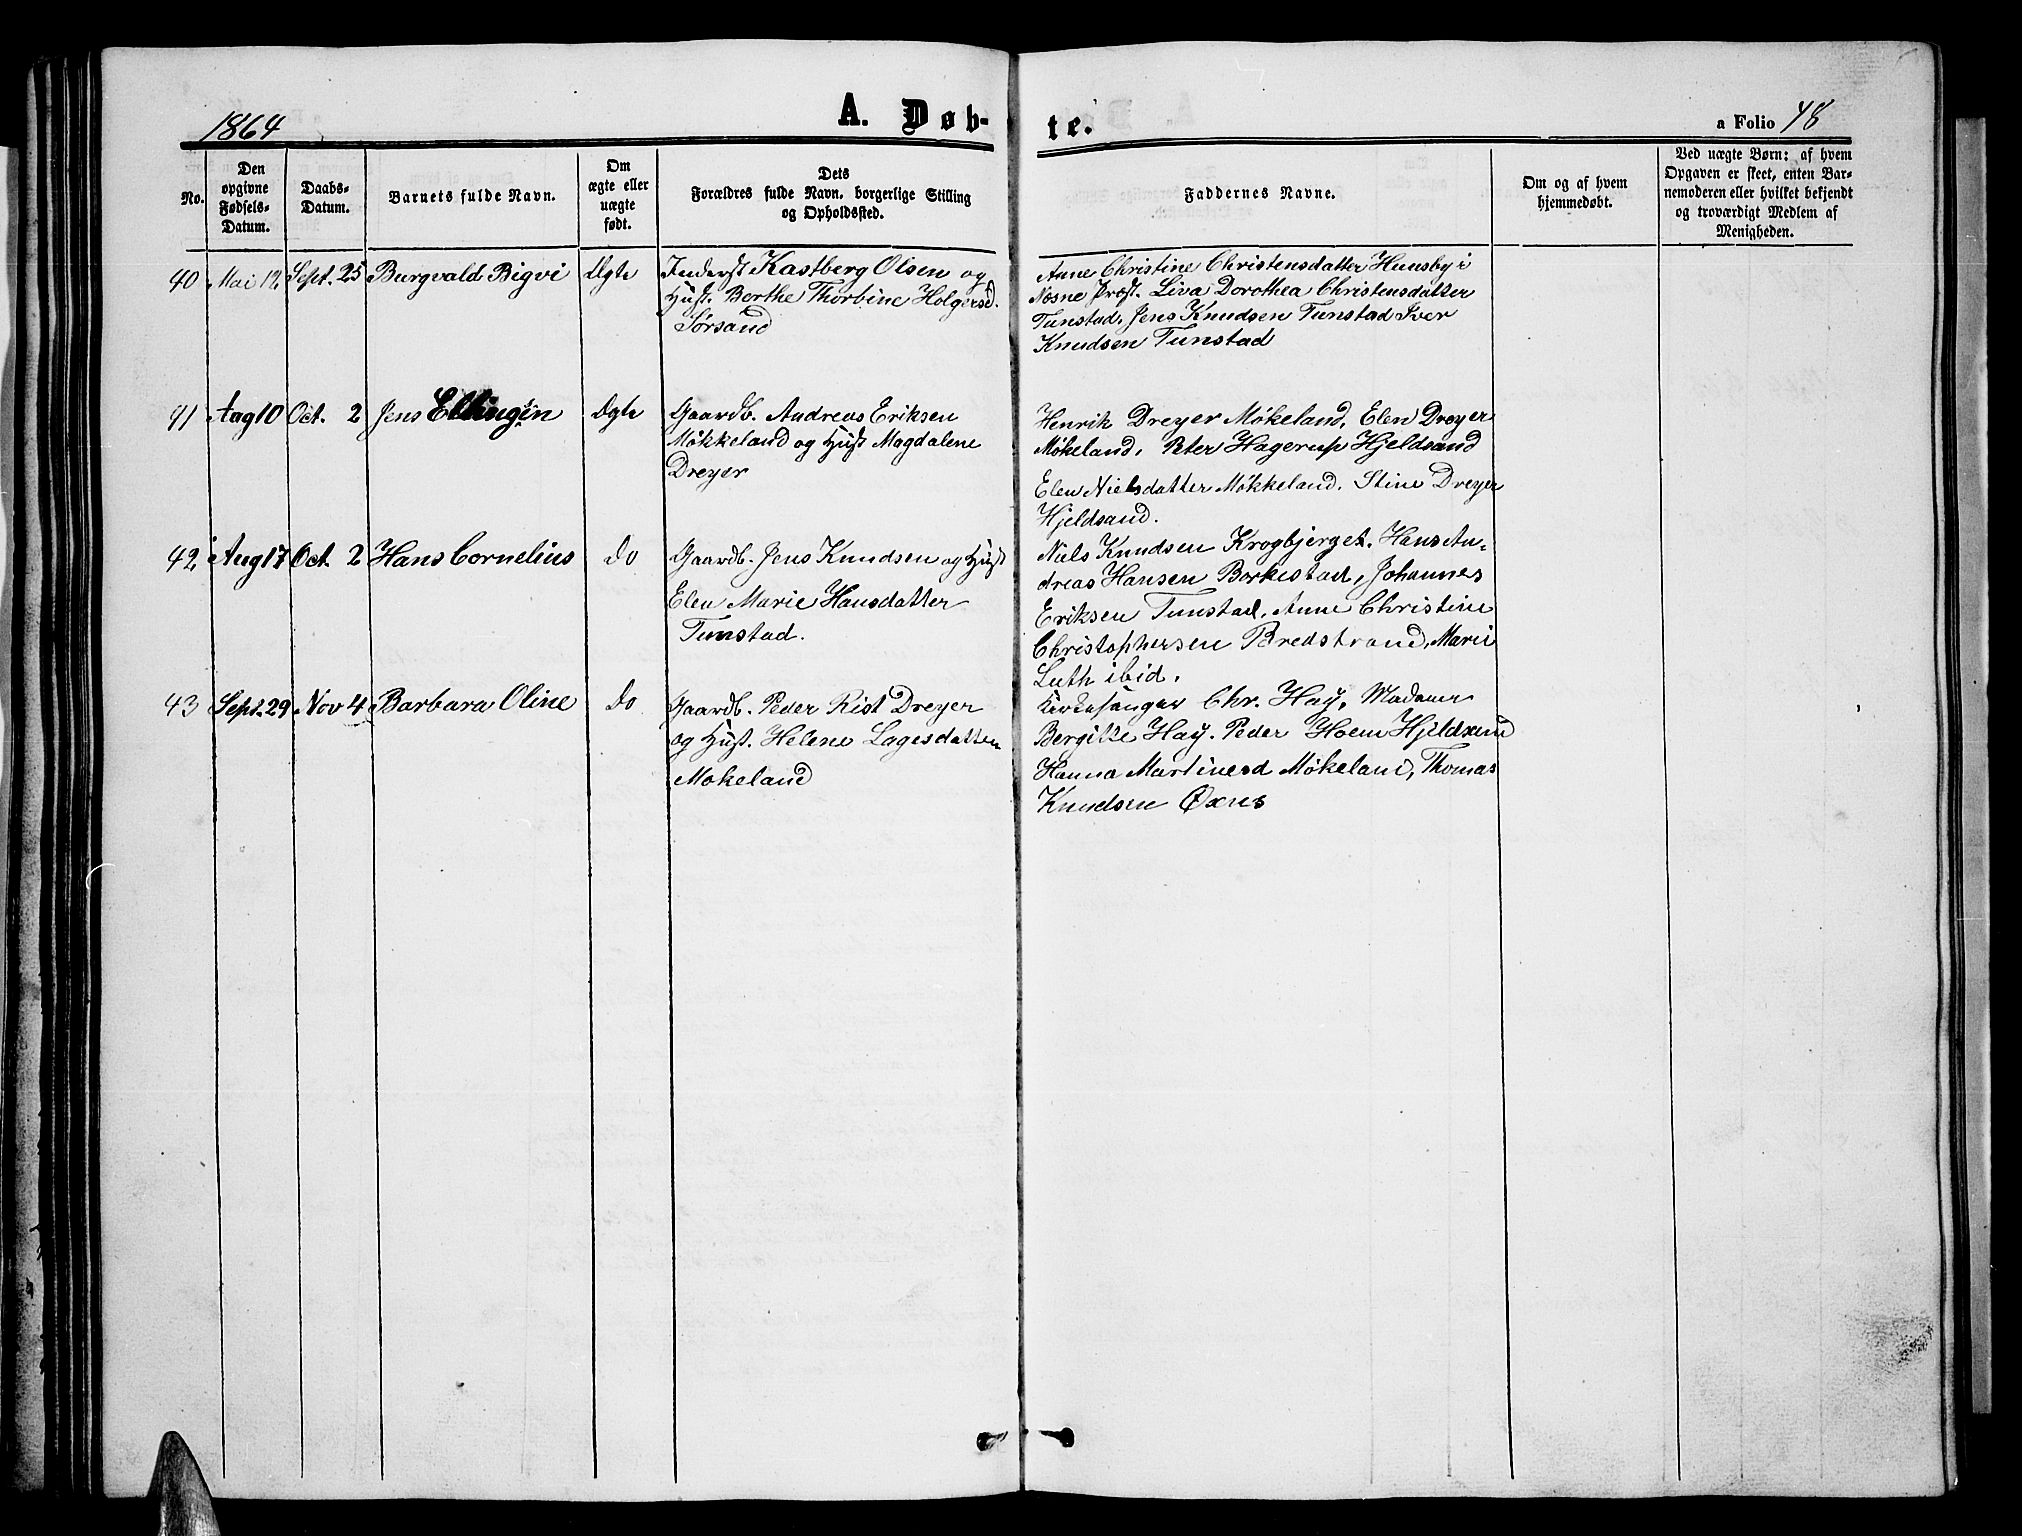 1864
A. Døb-
te.
a Folio 48
No.
Den
opgivne
Fødsels-
Datum.
Daabs-
Datum.
Barnets fulde Navn.
Om
ægte eller
uægte
født.
Dets
Forældres fulde Navn, borgerlige Stilling
og Opholdssted.
Faddernes Navne.
Om og af hvem
hjemmedøbt.
Ved uægte Børn: af hvem
Opgaven er skeet, enten Bar-
nemoderen eller hvilket bekjendt
og troværdigt Medlem af
Menigheden.
40 Mai 12 Sept. 25 Burgvald Bigvi Ægte Inderst Kastberg Olsen og
Hust. Berthe Thorbine Holgersd.
Sørsand
Anne Christine Christensdatter Hunsby i
Næsne Præst. Liva Dorothea Christensdatter
Tunstad, Jens Knudsen Tunstad Iver
Knudsen Tunstad
41 Aug 10 Oct. 2 Jens Ellingsen Ægte Gaardb. Andreas Eriksen
Møkkeland og Hust Magdalene
Dreyer
Henrik Dreyer Møkeland, Elen Dreyer
Møkeland, Peter Hagerup Hjeldsand
Elen Nielsdatter Møkkeland. Stine Dreyer
Hjeldsand.
42 Aug 17 Oct. 2 Hans Cornelius Do Gaardb. Jens Knudsen og Hust
Elen Marie Hansdatter
Tunstad.
Niels Knudsen Krogbjerget. Hans An-
dreas Hansen Borkestad, Johannes
Eriksen Tunstad, Anne Christine
Christophersen Bredstrand, Marie
Luth ibid.
43 Sept. 29 Nov 4 Barbara Oline Do Gaardb. Peder Rist Dreyer
og Hust. Helene Lagesdatter
Møkeland
Kirkesanger Chr. Hay, Madame
Bergitte Hay. Peder Hoem Hjeldsand
Hanna Martinesd Møkeland, Thomas
Knudsen Øxnes